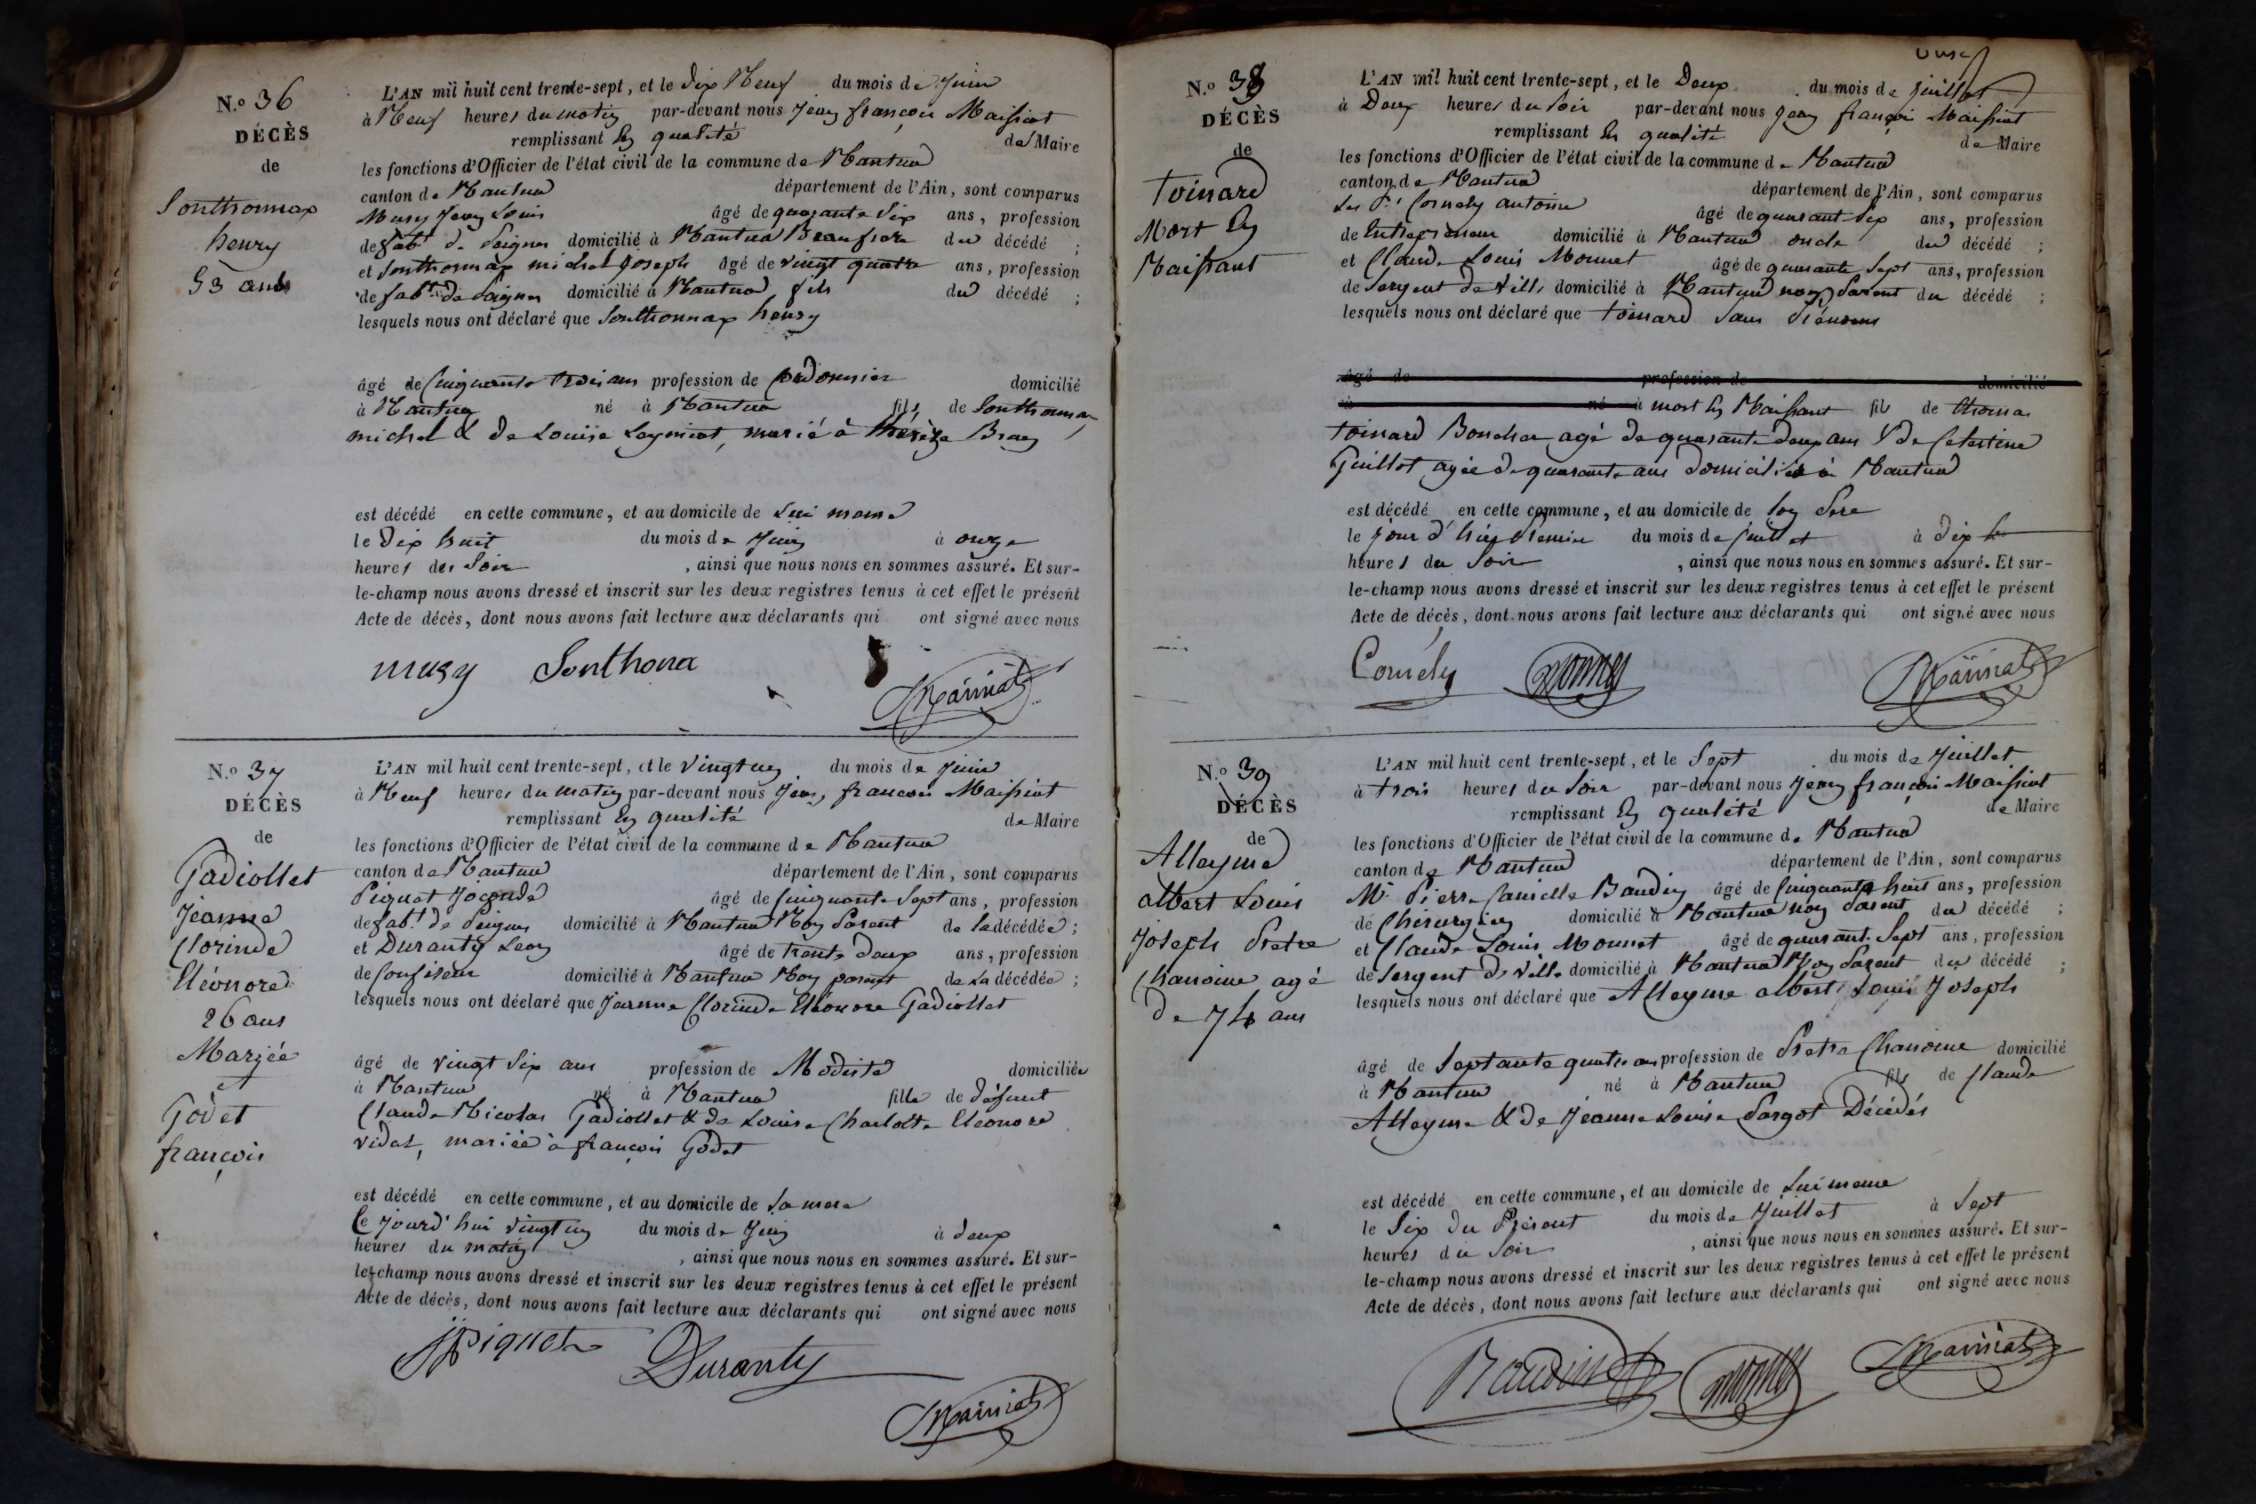 N.o 36
DÉCÈS
de
Sonthonnax
henry
53 ans
L'AN mil huit cent trente-sept, et le dix Neuf du mois de Juin
à Neuf heures du matin par-devant nous Jean françois Maissiat
remplissant En qualité de Maire
les fonctions d'Officier de l'état civil de la commune de Nantua
canton de Nantua département de l'Ain, sont comparus
Musy Jean Louis âgé de quarante Six ans, profession
de fabt de Peignes domicilié à Nantua Beaufrere du décédé ;
et Sonthonnax michel Joseph âgé de vingt quatre ans, profession
de fabt de Peignes domicilié à Nantua fils du décédé ;
lesquels nous ont déclaré que Sonthonnax henry
âgé de Cinquante trois ans profession de Cordonnier domicilié
à Nantua né à Nantua fils de Sonthonnax
michel & de Louise Laguiot, marié à thérèze Bray
est décédé en cette commune, et au domicile de Lui meme
le dix huit du mois de Juin à onze
heures du Soir , ainsi que nous nous en sommes assuré. Et sur-
le-champ nous avons dressé et inscrit sur les deux registres tenus à cet effet le présent
Acte de décès, dont nous avons fait lecture aux déclarants qui ont signé avec nous
musy Sonthona
Maissiat
N.o 37
DÉCÈS
de
Gadiollet
Jeanne
Clorinde
Eléonore
26 ans
Mariée
à
Godet
françois
L'AN mil huit cent trente-sept, et le vingt un du mois de Juin
à Neuf heures du matin par-devant nous Jean françois Maissiat
remplissant En qualité de Maire
les fonctions d'Officier de l'état civil de la commune de Nantua
canton de Nantua département de l'Ain, sont comparus
Piquet Joconde âgé de Cinquante Sept ans, profession
de fabt de Peignes domicilié à Nantua Non Parent de la décédée ;
et Duranty Leon âgé de trente deux ans, profession
de Confiseur domicilié à Nantua Non parent de La décédée ;
lesquels nous ont déclaré que Jeanne Clorinde Eléonore Gadiollet
âgé de vingt Six ans profession de Modiste domiciliée
à Nantua né à Nantua fille de défunt
Claude Nicolas Gadiollet & de Louise Charlotte Eleonore
vidat, mariée à françois Godet
est décédé en cette commune, et au domicile de Sa mere
Ce jourd'hui vingt un du mois de Juin à deux
heures du matin , ainsi que nous nous en sommes assuré. Et sur-
le-champ nous avons dressé et inscrit sur les deux registres tenus à cet effet le présent
Acte de décès, dont nous avons fait lecture aux déclarants qui ont signé avec nous
Piquet Duranty
Maissiat
N.o 38
DÉCÈS
de
toinard
Mort En
Naissant
L'AN mil huit cent trente-sept, et le Deux du mois de juillet
à Deux heures du Soir par-devant nous Jean françois Maissiat
remplissant En qualité de Maire
les fonctions d'Officier de l'état civil de la commune de Nantua
canton de Nantua département de l'Ain, sont comparus
Les Srs Cornely antoine âgé de quarant Six ans, profession
de Entrepreneur domicilié à Nantua oncle du décédé ;
et Claude Louis Monnet âgé de quarante Sept ans, profession
de Sergent de Ville domicilié à Nantua non Parent du décédé ;
lesquels nous ont déclaré que toinard Sans Prénoms
âgé de profession de domicilié
à né à mort En Naissant fils de thomas
toinard Boucher agé de quarante deux ans & de Celestine
Guillot agée de quarante ans domiciliés à Nantua
est décédé en cette commune, et au domicile de Son Pere
le jour d'hier Premier du mois de juillet à dix
heures du Soir , ainsi que nous nous en sommes assuré. Et sur-
le-champ nous avons dressé et inscrit sur les deux registres tenus à cet effet le présent
Acte de décès, dont nous avons fait lecture aux déclarants qui ont signé avec nous
Cornély Monnet
Maissiat
N.o 39
DÉCÈS
de
Alleyme
albert Louis
Joseph Pretre
Chanoine agé
de 74 ans
L'AN mil huit cent trente-sept, et le Sept du mois de Juillet
à trois heures du Soir par-devant nous Jean françois Maissiat
remplissant En qualité de Maire
les fonctions d'Officier de l'état civil de la commune de Nantua
canton de Nantua département de l'Ain, sont comparus
Mr Pierre Camille Baudin âgé de Cinquante huit ans, profession
de Chirurgien domicilié à Nantua non Parent du décédé ;
et Claude Louis Monnet âgé de quarante Sept ans, profession
de Sergent de Ville domicilié à Nantua Non Parent du décédé ;
lesquels nous ont déclaré que Alleyme albert Louis Joseph
âgé de Septante quatre ans profession de Pretre Chanoine domicilié
à Nantua né à Nantua fils de Claude
Alleyme & de Jeanne Louise Pargot Décédés
est décédé en cette commune, et au domicile de Lui meme
le Six du Présent du mois de Juillet à Sept
heures du Soir , ainsi que nous nous en sommes assuré. Et sur-
le-champ nous avons dressé et inscrit sur les deux registres tenus à cet effet le présent
Acte de décès, dont nous avons fait lecture aux déclarants qui ont signé avec nous
Baudin Monnet Maissiat